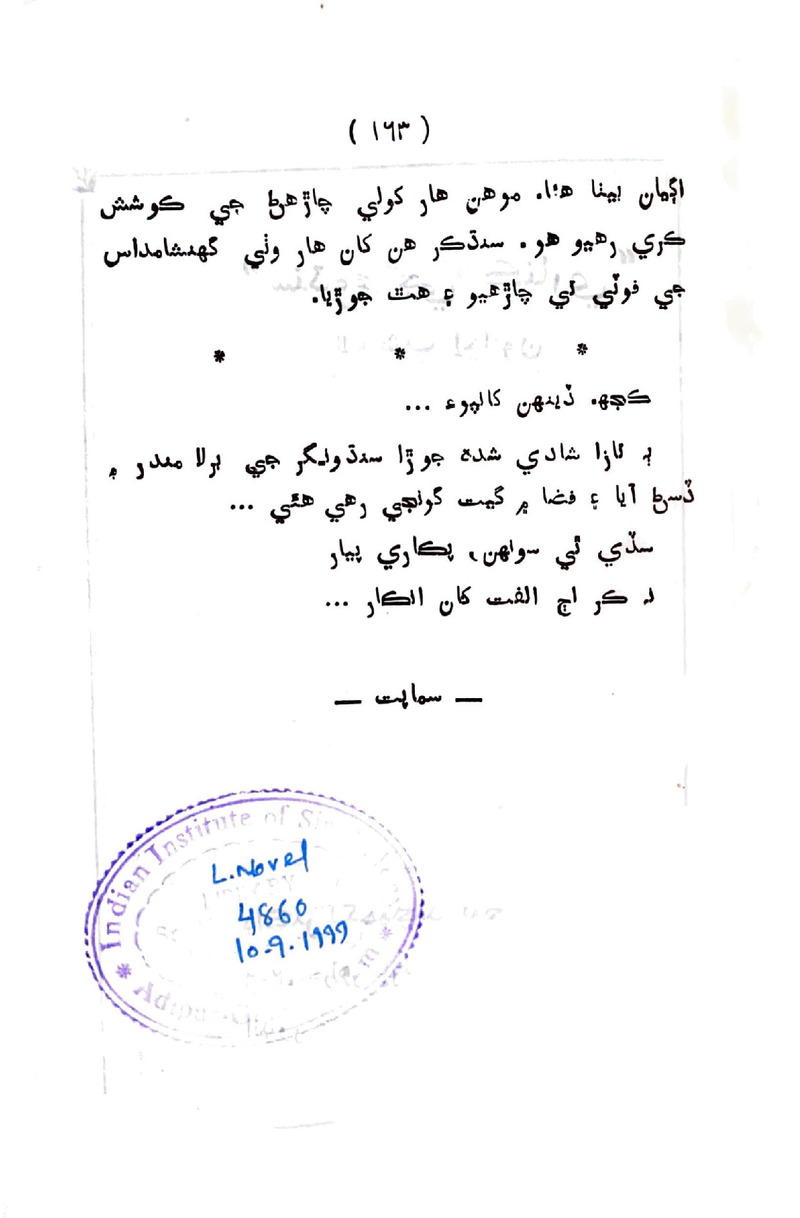 ( ١٦٣ )
اڳيان بيٺا هئا. موهن هار کولي چاڙهڻ جي ڪوشش
ڪري رهيو هو. سنڌڪر هن کان هار وٺي گھنشامداس
جي فوٽي تي چاڙهيو ۽ هٿ جوڙيا.
* * *
ڪجهہ ڏينهن کانپوءِ ...
ٻہ تازا شادي شده جوڙا سنڌونگر جي برلا مندر ۾
ڏسڻ آيا ۽ فضا ۾ گيت گونجي رهي هئي ...
سڏي ٿي سوانهن، پڪاري پيار
نہ ڪر اڄ الفت کان انڪار ...
— سماپت —
Indian Institute of
L. Novel
4860
10-9-1999